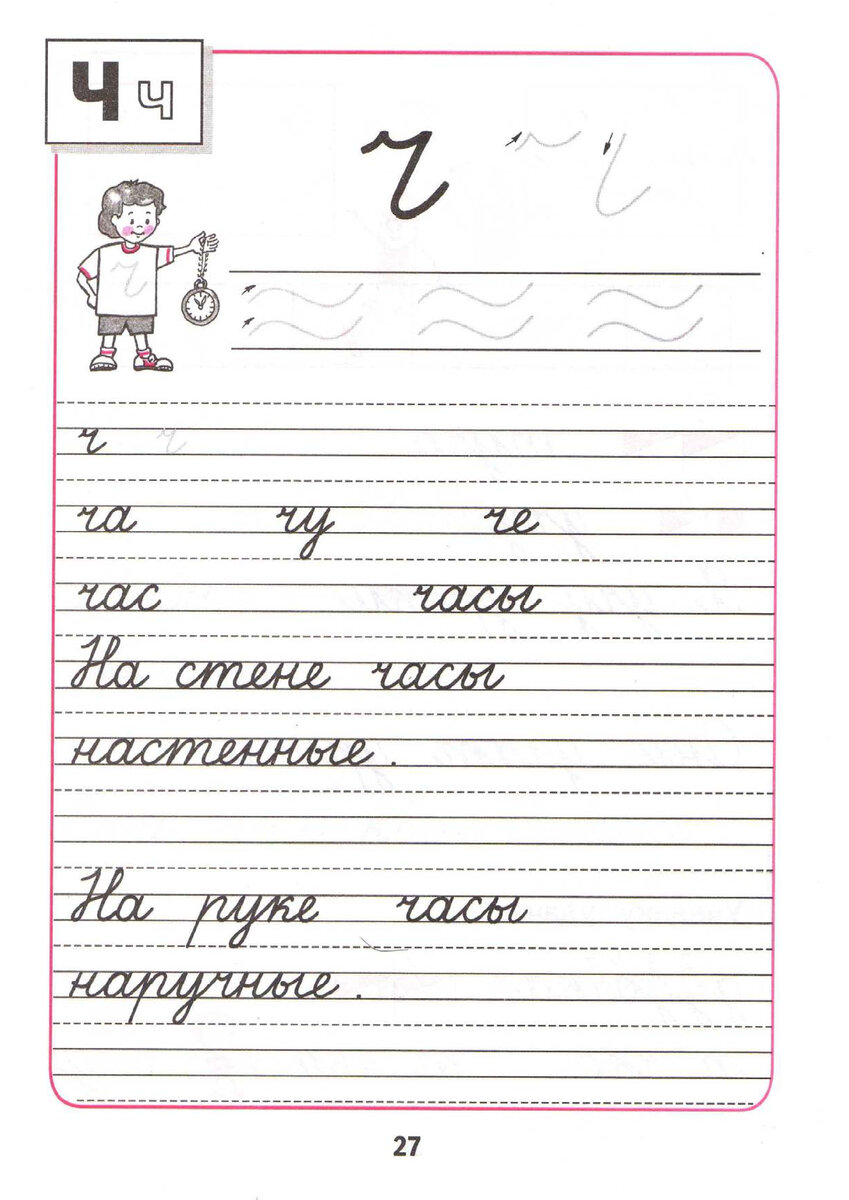 Ч ч
ч
ч
ч ч
ча чу че
час часы
На стене часы
настенные.
На руке часы
наручные.
27